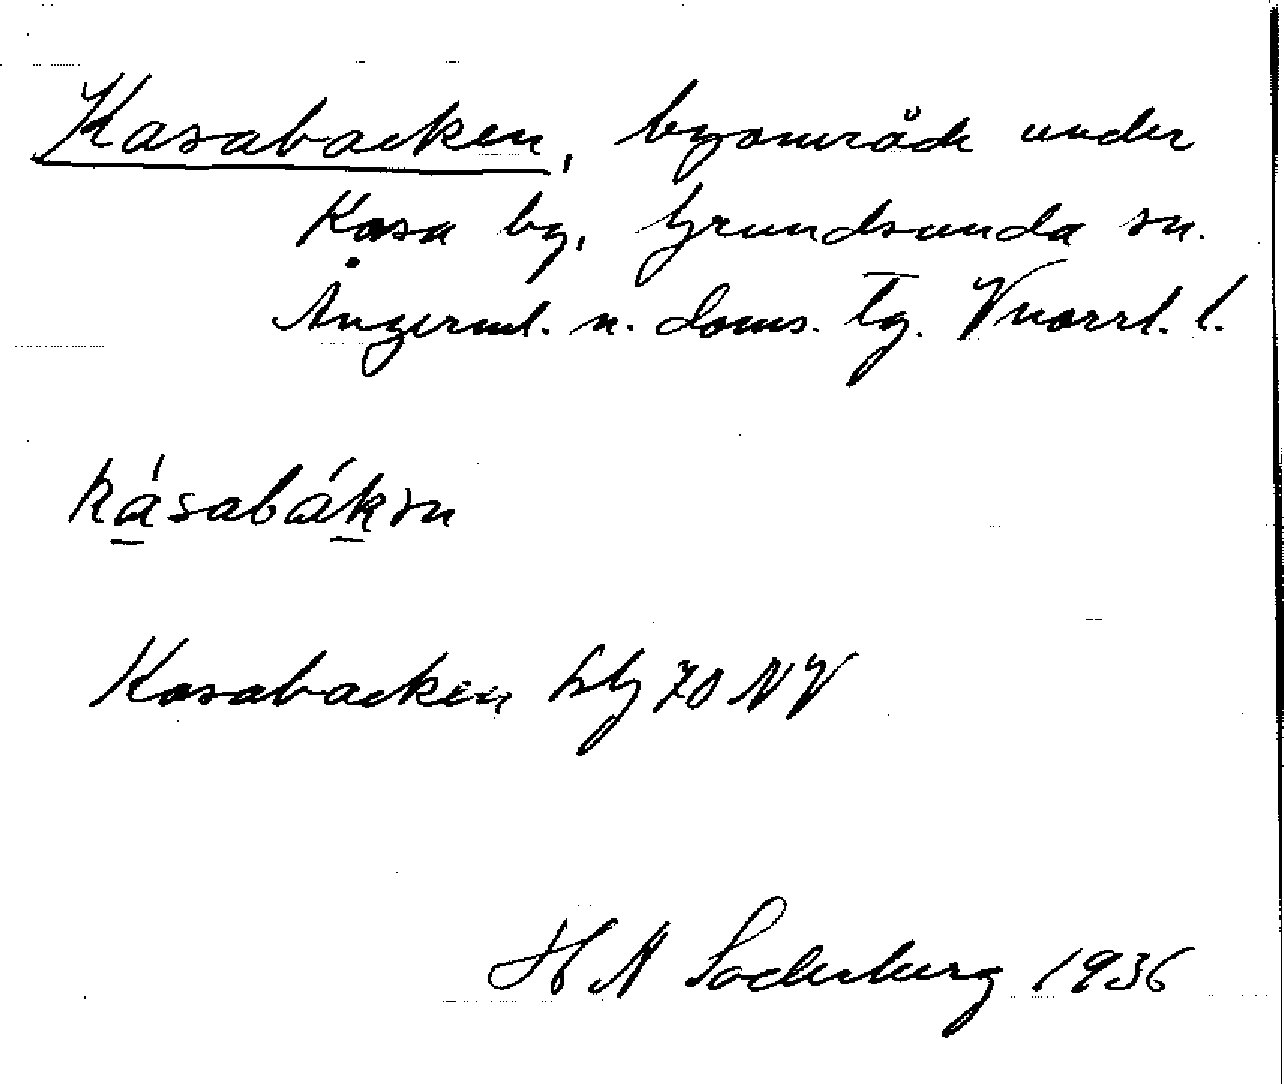 Kasabacken, byområde under
Kasa by, Grundsunda sn.
Ångerml. n. doms. tg. Vnorrl. l.
kásabákən
Kasabacken blg 70 NV
H A Söderberg 1936